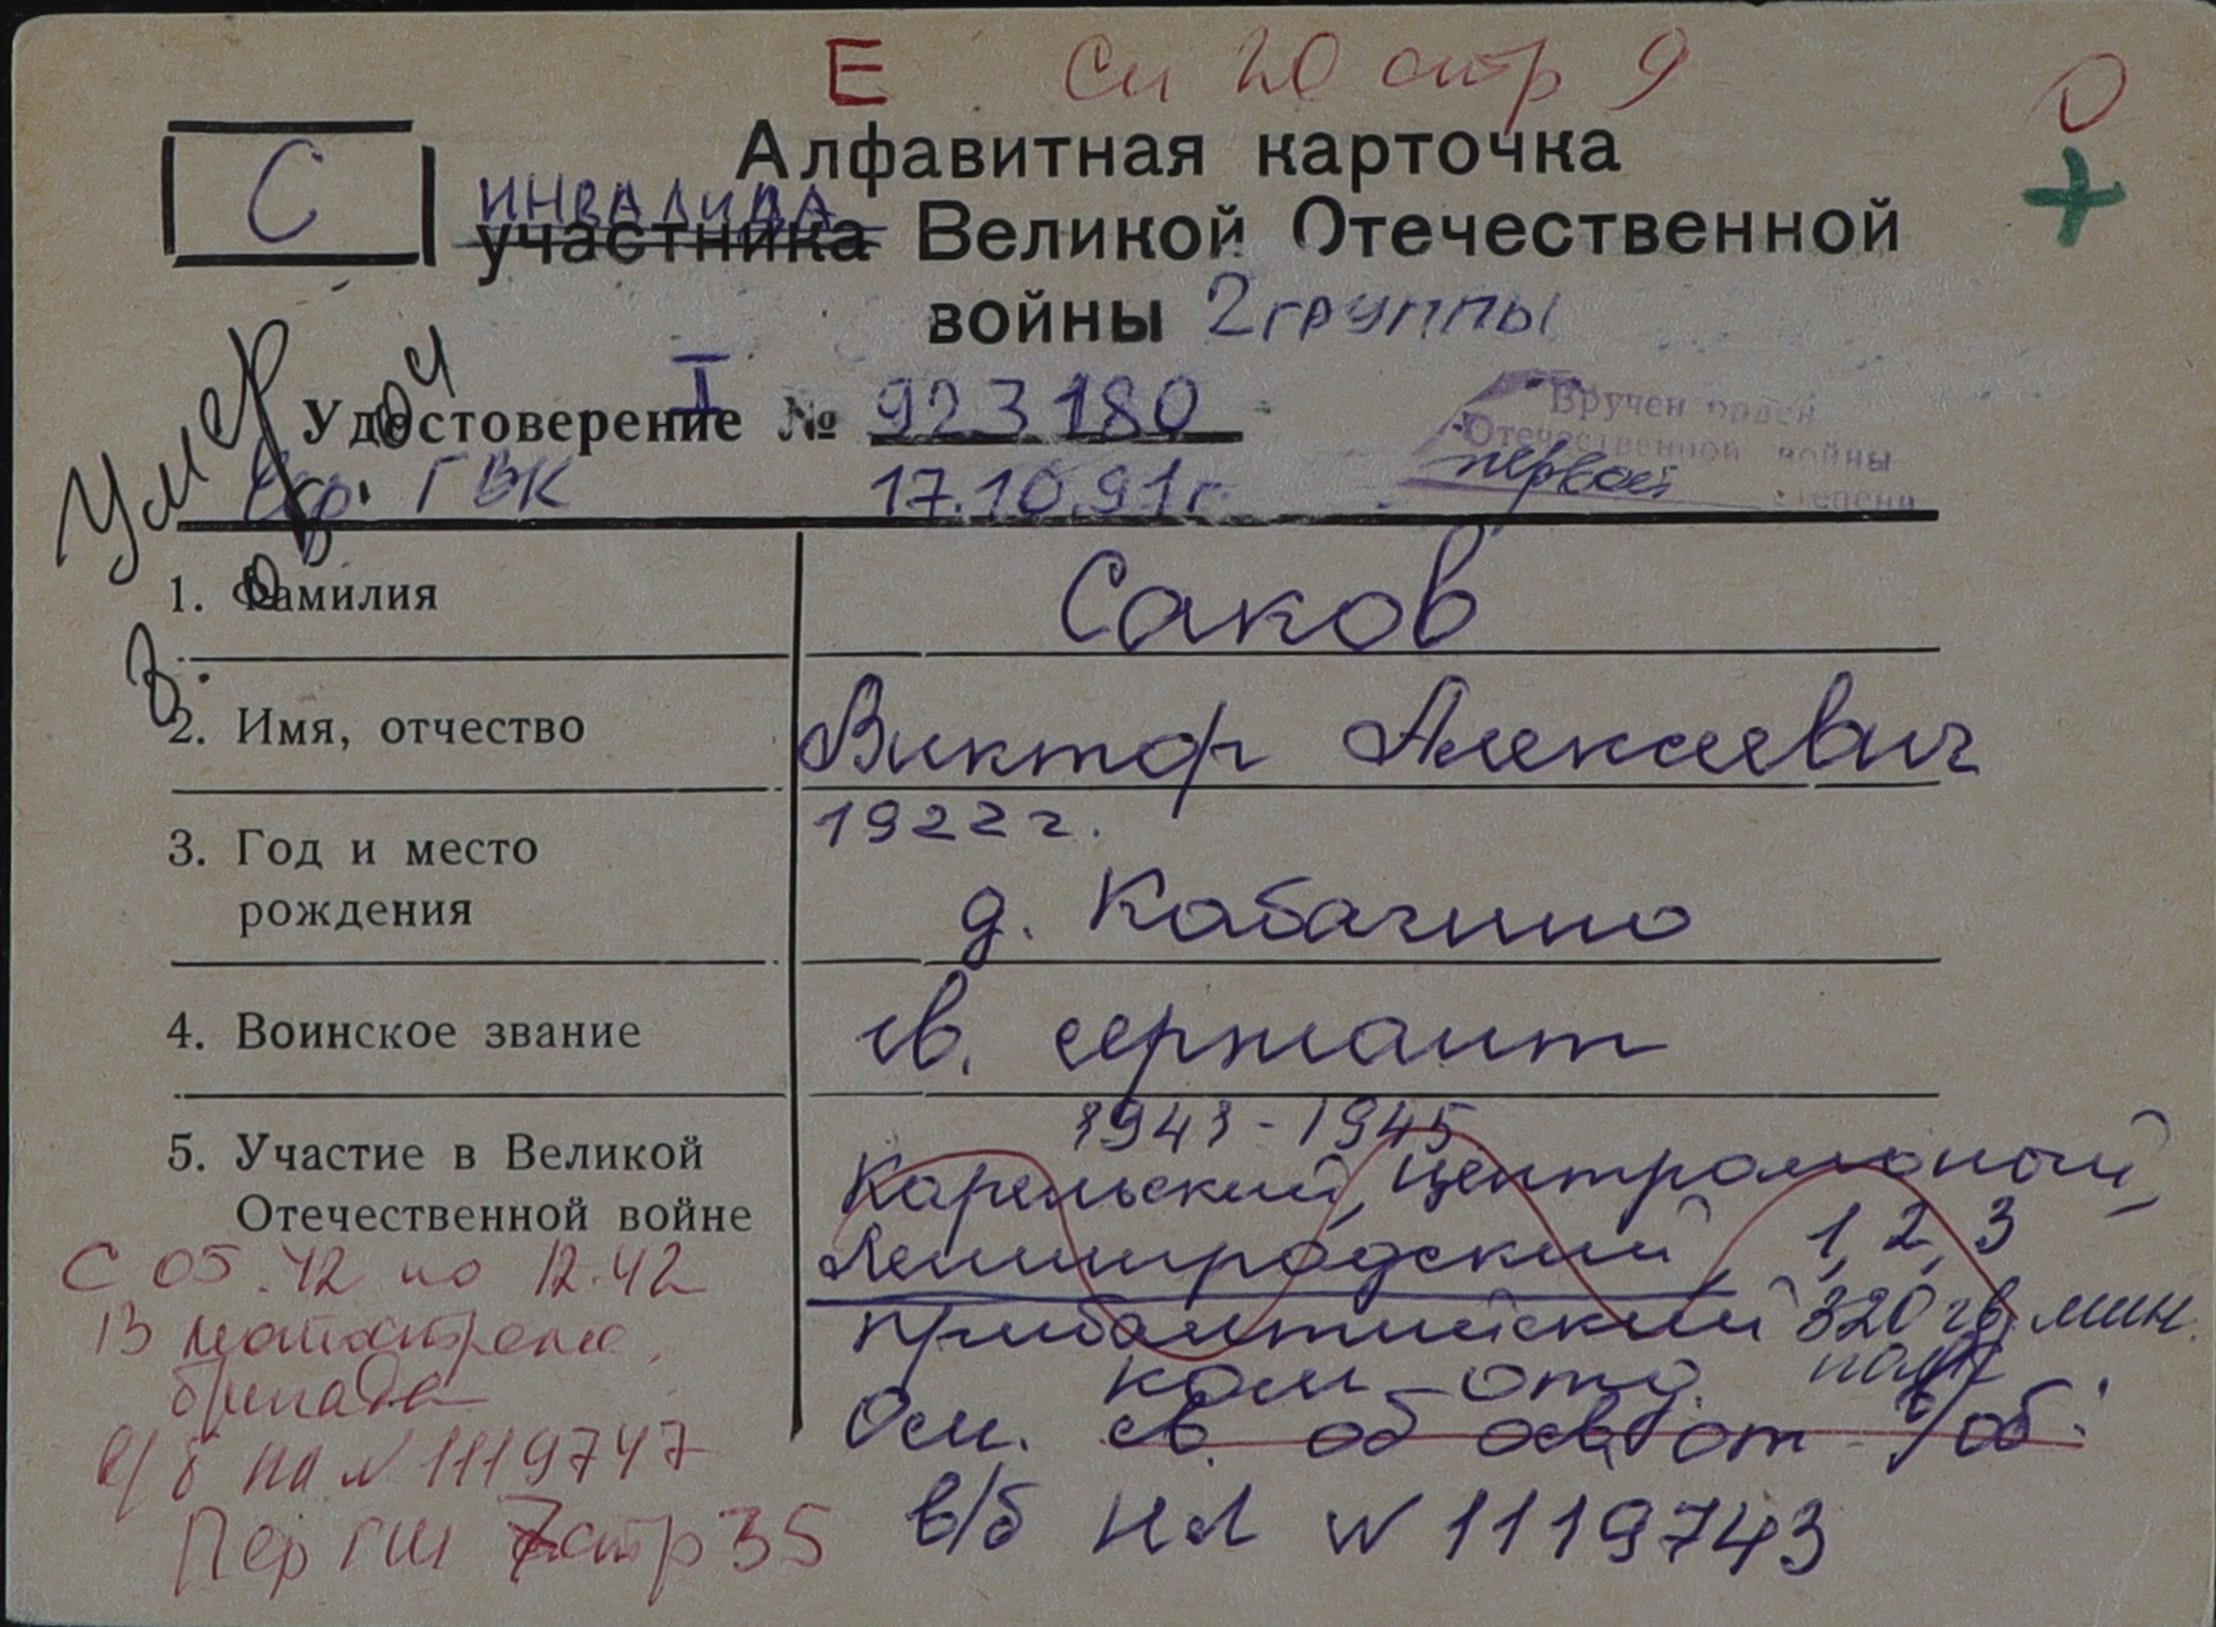 Е Сп 20 стр 9
О
С
Алфавитная карточка
+
ИНВАЛИДА
участника Великой Отечественной
войны 2 группы
Умер
Удостоверение I № 923180
Вручен орден
Отечественной войны
первой степени
ГВК 17.10.91г
1. Фамилия Саков
2. Имя, отчество Виктор Алексеевич
3. Год и место рождения 1922 г.
д. Кабачино
4. Воинское звание гв. сержант
5. Участие в Великой Отечественной войне
1941-1945
Карельский, Центральный,
Ленинградский, 1, 2, 3
Прибалтийский 320 гв. мин.
ком. отд. полк
Осн. св. об освоб от в/об.
в/б НЛ № 1119743
С 05.42 по 12.42
13 мотострелк.
бригада
в/б НЛ № 1119747
Пер ГШ 7 стр 35